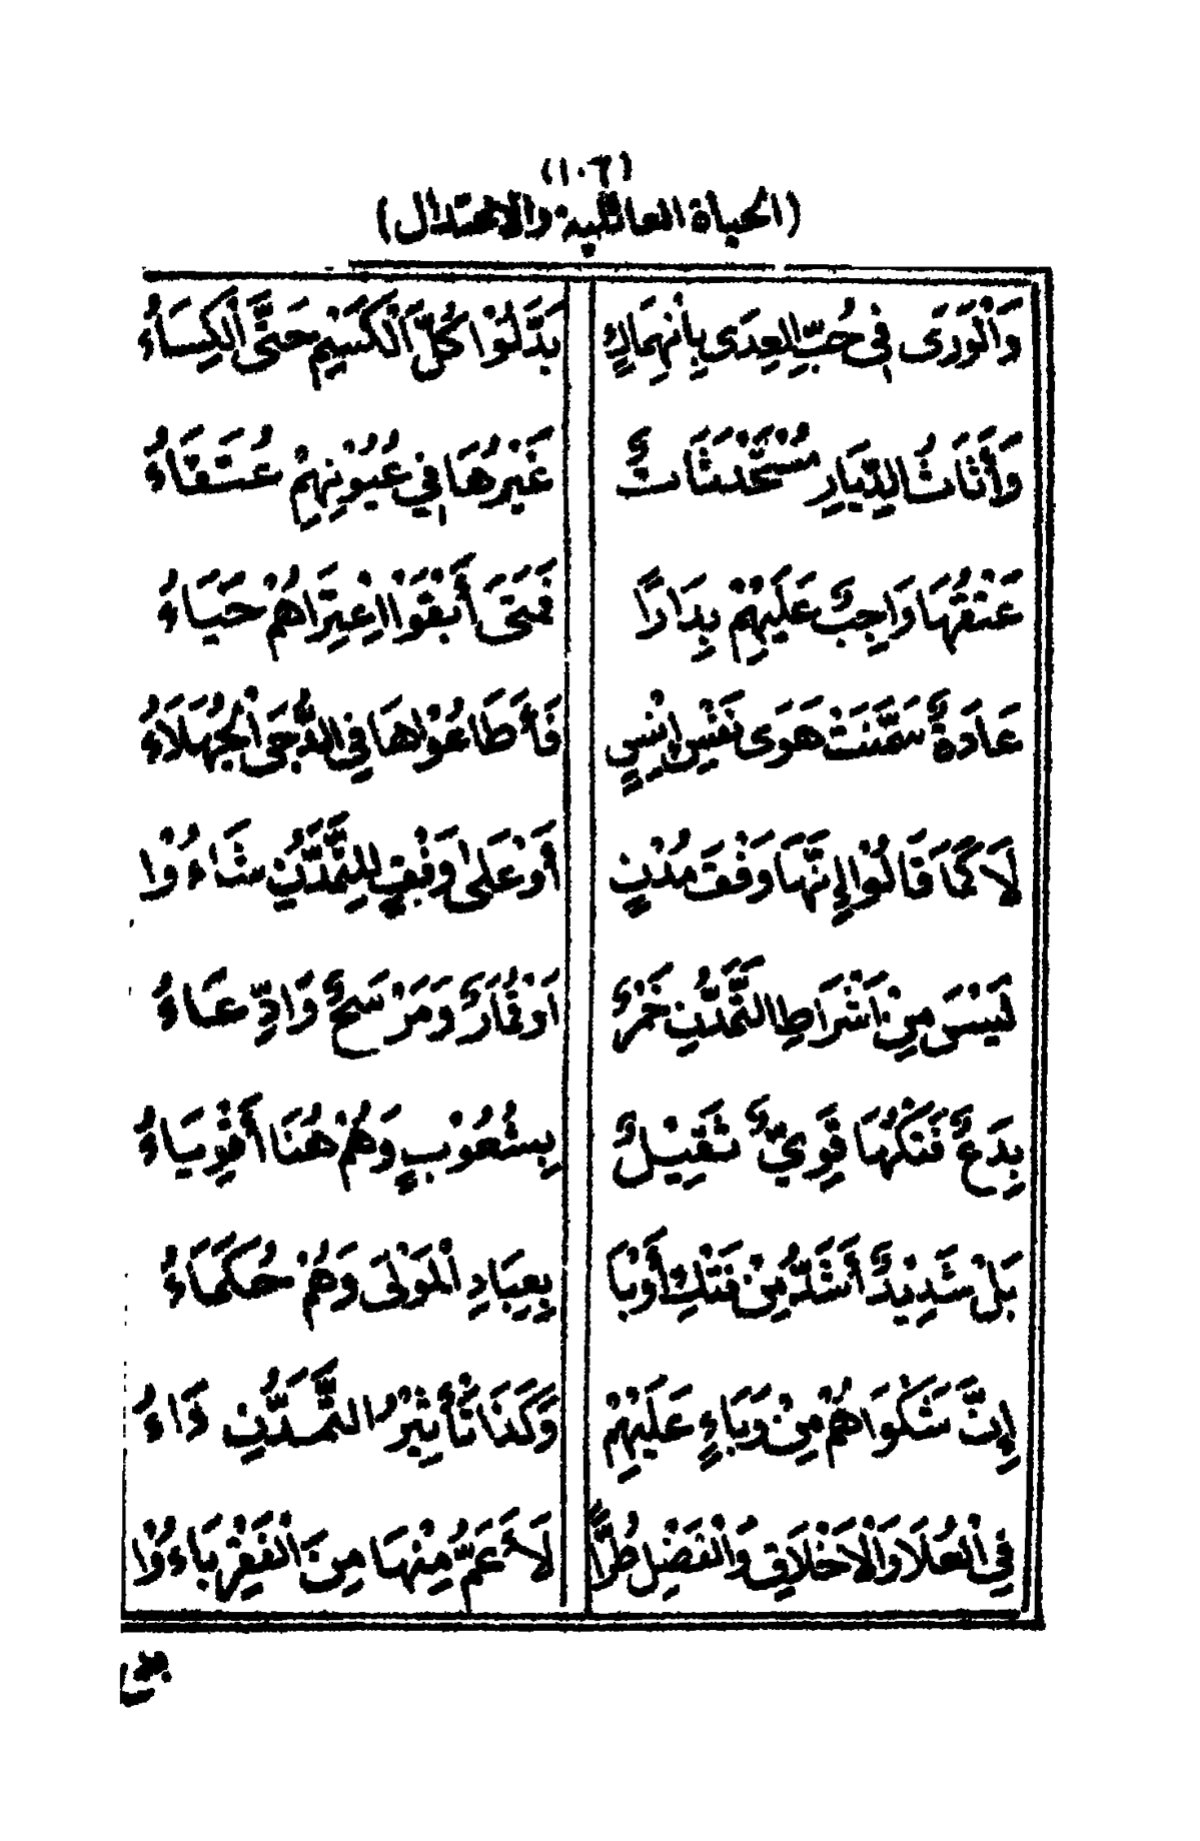 (١٠٦)
(الحياة العائلية والاعتدال)
وَالْوَرَى فِي حُبِّ الِعِدَى بِانْهِمَاكٍ بَدَّلُوْا كُلَّ الْكَسِيْمِ حَتَّى الْكِسَاءُ
وَأَثَاثُ الدِّيَارِ مُسْتَحْدَثَاتٌ غَيْرُهَا فِي عُيُوْنِهِمْ عُتَقَاءُ
عَنْقُهَا وَاجِبٌ عَلَيْهِمْ بِدَارًا فَمَتَى أَبْقَوْا اعْتِرَاهُمْ حَيَاءُ
عَادَةٌ سَمَّنَتْ هَوَى نَفْسِ إِنْسٍ فَأَطَاعُوْاهَا فِي الدُّجَى الْجُهَلَاءُ
لَا كَمَا قَالُوْا إِنَّهَا وَفْقَ مُدْنٍ أَوْ عَلَى وَفْقٍ لِلتَّمَدُّنِ شَاءُوْا
لَيْسَ مِنْ اَشْرَاطِ التَّمَدُّنِ خَمْرٌ اَوْ قُمَارٌ وَمَرْسَحٌ وَادِّعَاءُ
بِدَعٌ فَتَكُهَا قَوِيٌّ ثَقِيْلٌ بِشُعُوْبٍ وَهُمْ هُنَا أَقْوِيَاءُ
بَلْ شَدِيْدٌ أَشَدُّ مِنْ فَتْكِ أَوْبَا بِعِبَادِ الْمَوْلَى وَهُمْ حُكَمَاءُ
إِنَّ شَكْوَاهُمْ مِنْ وَبَاءٍ عَلَيْهِمْ وَكَذَا تَأْثِيْرُ التَّمَدُّنِ دَاءُ
فِي الْعُلَا وَالْاَخْلَاقِ وَالْفَضْلِ طُرًّا لَأَعَمُّ مِنْهَا مِنَ الْفَقْرِ بَاءُوْا